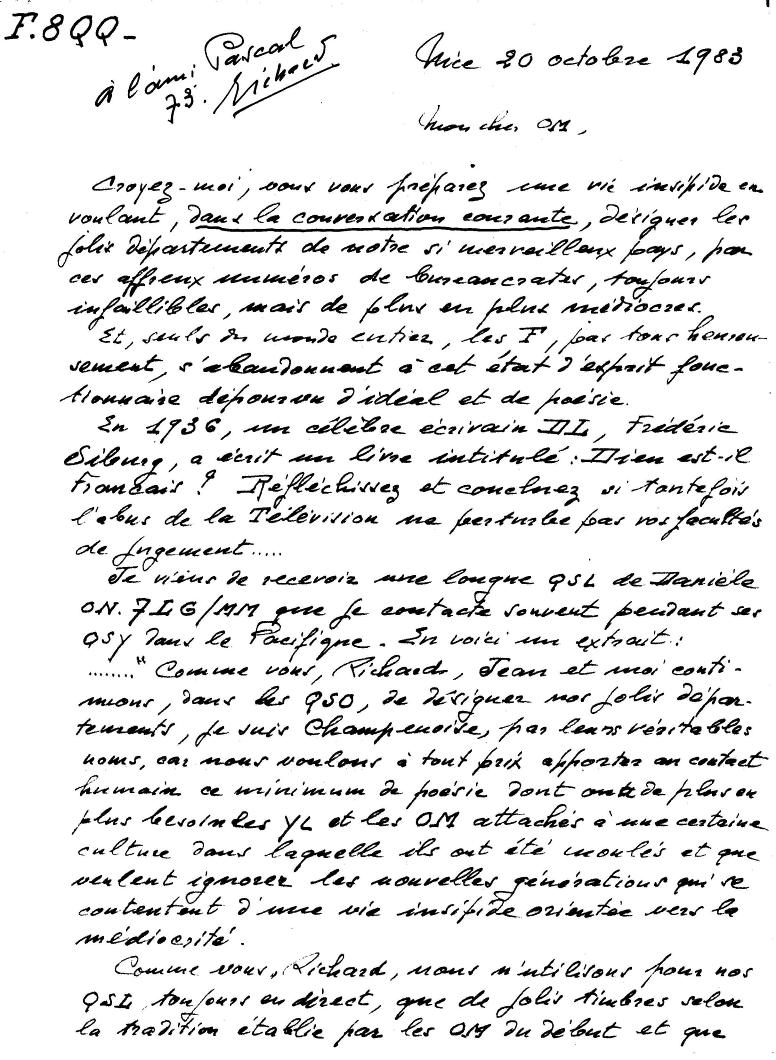 F.8QQ-
à l'ami Pascal
73. Richard
Nice 20 octobre 1983
Mon cher OM,
Croyez-moi, vous vous préparez une vie insipide en
voulant, dans la conversation courante, désigner les
jolis départements de notre si merveilleux pays, par
ces affreux numéros de bureaucrates, toujours
infaillibles, mais de plus en plus médiocres.
Et, seuls du monde entier, les F, pas tous heureu-
sement, s'abandonnent à cet état d'esprit fonc-
tionnaire dépourvu d'idéal et de poésie.
En 1936, un célèbre écrivain DL, Frédéric
Siburg, a écrit un livre intitulé : Dieu est-il
Français ? Réfléchissez et concluez si toutefois
l'abus de la Télévision ne perturbe pas vos facultés
de jugement.....
Je viens de recevoir une longue QSL de Danièle
ON.7LG/MM que je contacte souvent pendant ses
QSY dans le Pacifique. En voici un extrait :
........" Comme vous, Richard, Jean et moi conti-
nuons, dans les QSO, de désigner nos jolis dépar-
tements, je suis Champenoise, par leurs véritables
noms, car nous voulons à tout prix apporter au contact
humain ce minimum de poésie dont ont de plus en
plus besoin les YL et les OM attachés à une certaine
culture dans laquelle ils ont été moulés et que
veulent ignorer les nouvelles générations qui se
contentent d'une vie insipide orientée vers la
médiocrité.
Comme vous, Richard, nous n'utilisons pour nos
QSL toujours en direct, que de jolis timbres selon
la tradition établie par les OM du début et que